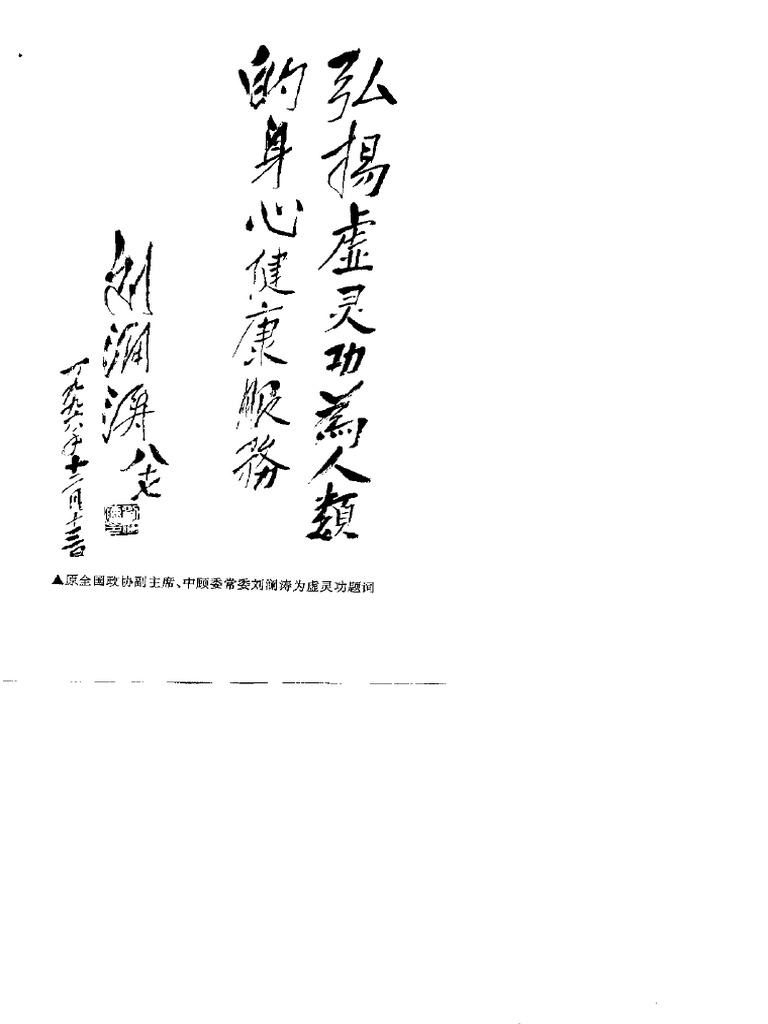 弘揚虚灵功為人類
的身心健康服務
刘澜涛八十七
一九九六年十二月十三日
▲原全国政协副主席、中顾委常委刘澜涛为虚灵功题词